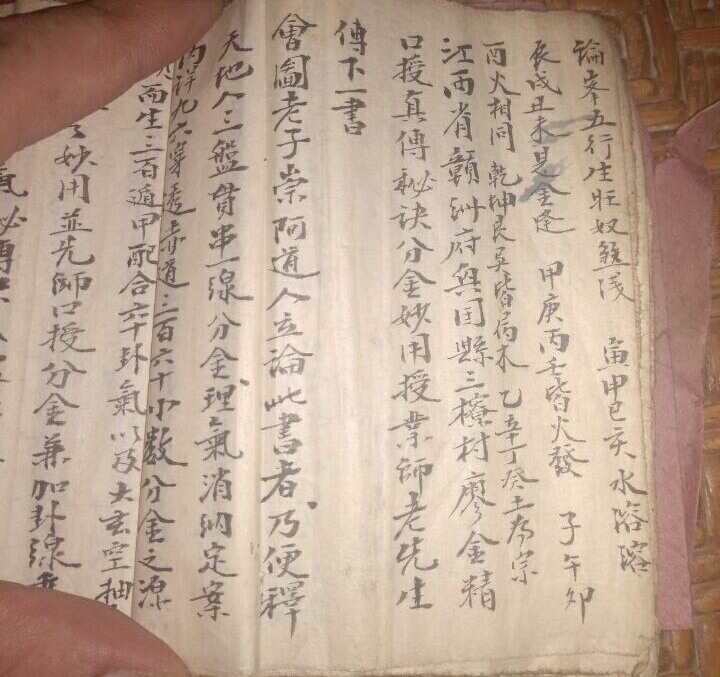 論峯五行生旺奴煞浅 寅甲巳亥水溶溶
辰戌丑未見金逢 甲庚丙壬皆火發 子午卯
酉火相同 乾坤艮巽皆属木 乙辛丁癸土為宗
江西省贛州府興囯縣三橑村廖金精
口授真傳秘訣分金妙用授業師老先生
傳下一書
會圖老子崇阿道人立論此書者乃便釋
天地人三盤貫串一線分金理氣消納定案
内詳九六穿透赤道三百六十小數分金之源
而生三百遁甲配合六十卦氣以及大玄空抽
妙用並先師口授分金兼加卦線
氣必